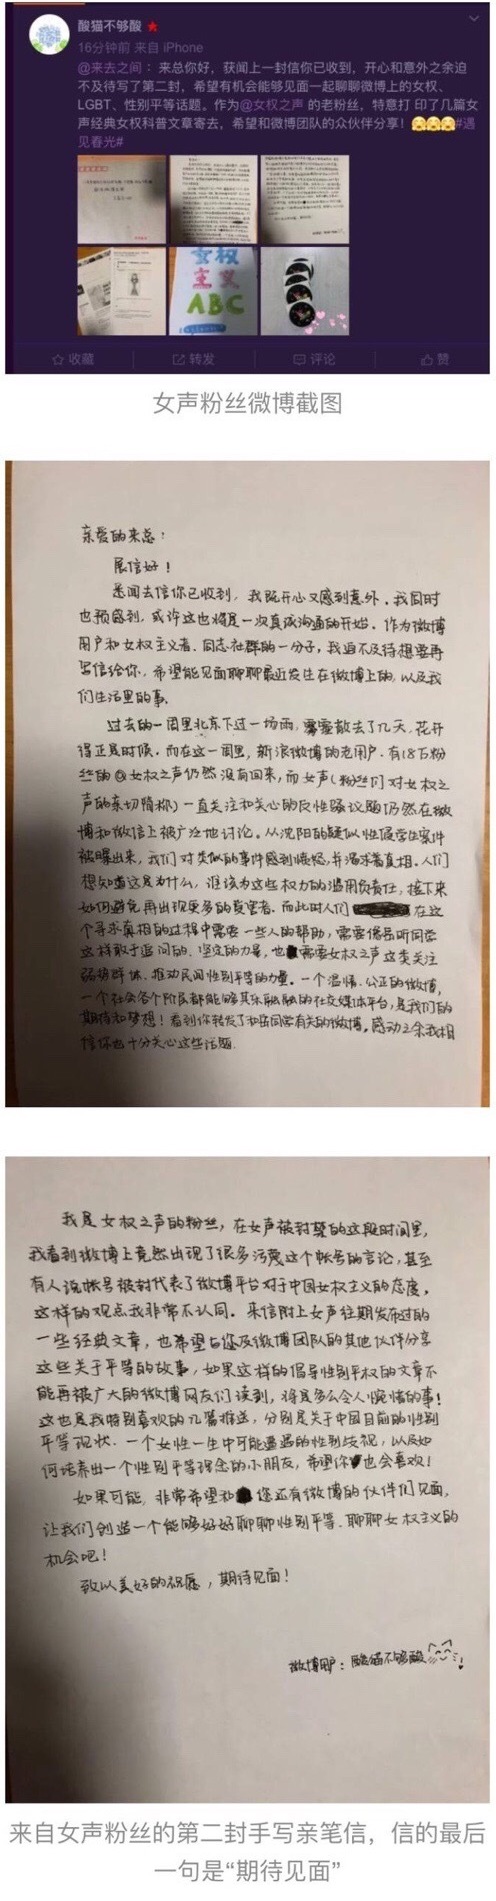 酸猫不够酸
16分钟前 来自 iPhone
@来去之间：来总你好，获闻上一封信你已收到，开心和意外之余迫
不及待写了第二封，希望有机会能够见面一起聊聊微博上的女权、
LGBT、性别平等话题。作为@女权之声 的老粉丝，特意打 印了几篇女
声经典女权科普文章寄去，希望和微博团队的众伙伴分享！#遇
见春光#
女权
主义
ABC
收藏
转发
评论
赞
女声粉丝微博截图
亲爱的来总：
展信好！
悉闻去信你已收到，我既开心又感到意外。我同时
也预感到，或许这也将是一次真诚沟通的开始。作为微博
用户和女权主义者、同志社群的一分子，我迫不及待想要再
写信给你，希望能见面聊聊最近发生在微博上的，以及我
们生活里的事。
过去的一周里北京下过一场雨，雾霾散去了几天，花开
得正是时候。而在这一周里，新浪微博的老用户、有18万粉
丝的@女权之声仍然没有回来，而女声（粉丝们对女权之
声的亲切简称）一直关注和关心的反性骚议题仍然在微
博和微信上被广泛地讨论。从沈阳的疑似性侵学生案件
被曝出来，我们对类似的事件感到愤怒，并渴求着真相。人们
想知道这是为什么，谁该为这些权力的滥用负责任，接下来
如何避免再出现更多的受害者。而此时人们在这
个寻求真相的过程中需要一些人的帮助，需要像岳昕同学
这样敢于追问的、坚定的力量，也需要女权之声这类关注
弱势群体、推动民间性别平等的力量。一个温情、公正的微博，
一个社会各个阶层都能够其乐融融的社交媒体平台，是我们的
期待和梦想！看到你转发了和岳同学有关的微博，感动之余我相
信你也十分关心这些话题。
我是女权之声的粉丝，在女声被封禁的这段时间里，
我看到微博上竟然出现了很多污蔑这个帐号的言论，甚至
有人说帐号被封代表了微博平台对于中国女权主义的态度，
这样的观点我非常不认同。来信附上女声往期发布过的
一些经典文章，也希望与您及微博团队的其他伙伴分享
这些关于平等的故事，如果这样的倡导性别平权的文章不
能再被广大的微博网友们读到，将是多么令人惋惜的事！
这也是我特别喜欢的几篇推送，分别是关于中国目前的性别
平等现状、一个女性一生中可能遭遇的性别歧视，以及如
何培养出一个性别平等理念的小朋友，希望你也会喜欢！
如果可能，非常希望和您还有微博的伙伴们见面，
让我们创造一个能够好好聊聊性别平等、聊聊女权主义的
机会吧！
致以美好的祝愿，期待见面！
微博用户：酸猫不够酸
来自女声粉丝的第二封手写亲笔信，信的最后
一句是“期待见面”